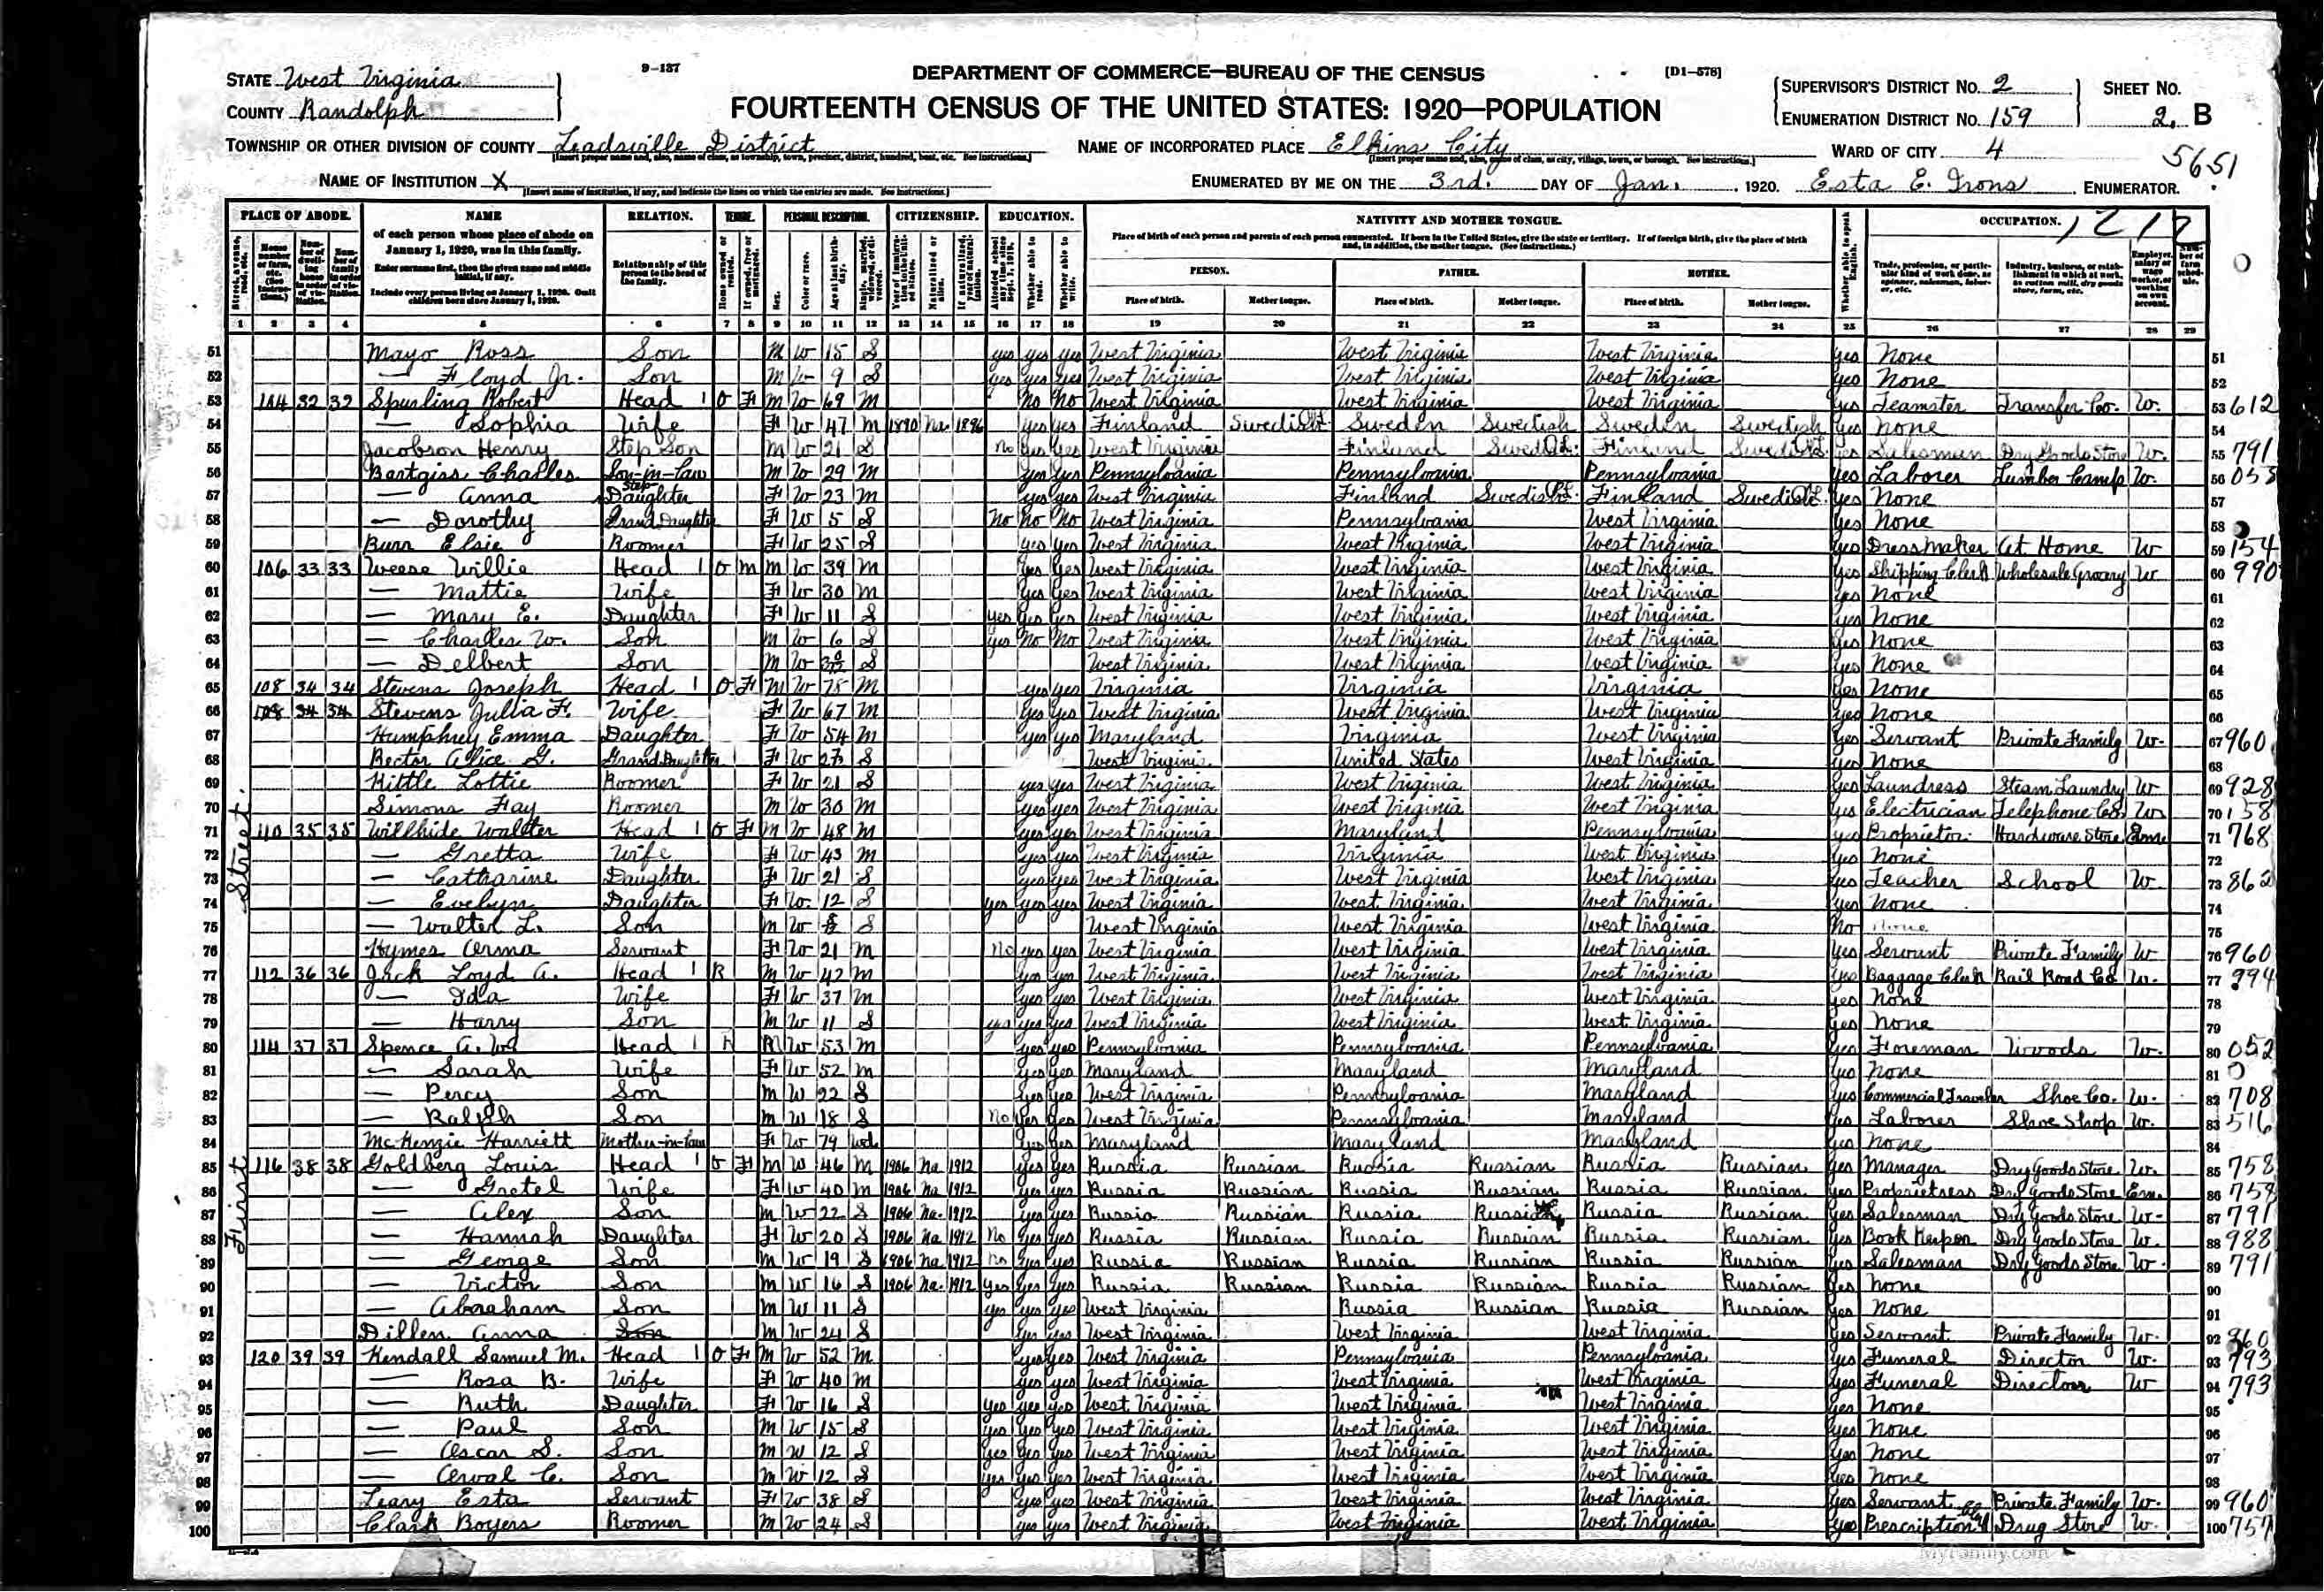 9-137
DEPARTMENT OF COMMERCE—BUREAU OF THE CENSUS
[D1-578]
STATE West Virginia
COUNTY Randolph
FOURTEENTH CENSUS OF THE UNITED STATES: 1920—POPULATION
SUPERVISOR'S DISTRICT No. 2
ENUMERATION DISTRICT No. 159
SHEET No. 2 B
TOWNSHIP OR OTHER DIVISION OF COUNTY Leadsville District
NAME OF INCORPORATED PLACE Elkins City
WARD OF CITY 4
5651
NAME OF INSTITUTION X
ENUMERATED BY ME ON THE 3rd. DAY OF Jan., 1920. Esta E. Irons, ENUMERATOR.
PLACE OF ABODE. NAME RELATION. TENURE. PERSONAL DESCRIPTION. CITIZENSHIP. EDUCATION. NATIVITY AND MOTHER TONGUE. OCCUPATION. 1217
of each person whose place of abode on January 1, 1920, was in this family.
Enter surname first, then the given name and middle initial, if any.
Include every person living on January 1, 1920. Omit children born since January 1, 1920.
Relationship of this person to the head of the family.
Place of birth of each person and parents of each person enumerated. If born in the United States, give the state or territory. If of foreign birth, give the place of birth and, in addition, the mother tongue. (See Instructions.)
PERSON. FATHER. MOTHER.
Place of birth. Mother tongue. Place of birth. Mother tongue. Place of birth. Mother tongue.
1 2 3 4 5 6 7 8 9 10 11 12 13 14 15 16 17 18 19 20 21 22 23 24 25 26 27 28 29
First Street.
51 Mayo Ross Son M W 15 S yes yes yes West Virginia West Virginia West Virginia yes None 51
52 — Floyd Jr. Son M W 9 S yes yes yes West Virginia West Virginia West Virginia yes None 52
53 104 32 32 Spurling Robert Head 1 O F M W 69 M No No West Virginia West Virginia West Virginia yes Teamster Transfer Co. W. 53 612
54 — Sophia Wife F W 47 M 1890 Na 1896 yes yes Finland Swedish Sweden Swedish Sweden Swedish yes None 54
55 Jacobson Henry Step Son M W 21 S no yes yes West Virginia Finland Swedish Finland Swedish yes Salesman Dry Goods Store W. 55 791
56 Bartgiss Charles Son-in-law M W 29 M yes yes Pennsylvania Pennsylvania Pennsylvania yes Laborer Lumber Camp W. 56
57 — Anna Step Daughter F W 23 M yes yes West Virginia Finland Swedish Finland Swedish yes None 57
58 — Dorothy Grand Daughter F W 5 S No No No West Virginia Pennsylvania West Virginia yes None 58
59 Burr Elsie Roomer F W 25 S yes yes West Virginia West Virginia West Virginia yes Dressmaker At Home W 59 154
60 106 33 33 Weese Willie Head 1 O M M W 39 M yes yes West Virginia West Virginia West Virginia yes Shipping Clerk Wholesale Grocery W 60 990
61 — Mattie Wife F W 30 M yes yes West Virginia West Virginia West Virginia yes None 61
62 — Mary E. Daughter F W 11 S yes yes yes West Virginia West Virginia West Virginia yes None 62
63 — Charles W. Son M W 6 S yes No No West Virginia West Virginia West Virginia yes None 63
64 — Delbert Son M W S West Virginia West Virginia West Virginia yes None 64
65 108 34 34 Stevens Joseph Head 1 O F M W 78 M yes yes Virginia Virginia Virginia yes None 65
66 108 34 34 Stevens Julia F. Wife F W 67 M yes yes West Virginia West Virginia West Virginia yes None 66
67 Humphrey Emma Daughter F W 54 M yes yes Maryland Virginia West Virginia yes Servant Private Family W. 67 960
68 Rector Alice G. Grand Daughter F W S West Virginia United States West Virginia yes None 68
69 Kittle Lottie Roomer F W 21 S yes yes West Virginia West Virginia West Virginia yes Laundress Steam Laundry W 69 928
70 Simons Fay Roomer M W 30 M yes yes West Virginia West Virginia West Virginia yes Electrician Telephone Co. W 70 158
71 110 35 35 Willhide Walter Head 1 O F M W 48 M yes yes West Virginia Maryland Pennsylvania yes Proprietor Hardware Store Em. 71 768
72 — Gretta Wife F W 43 M yes yes West Virginia Virginia West Virginia yes None 72
73 — Catharine Daughter F W 21 S yes yes West Virginia West Virginia West Virginia yes Teacher School W. 73 862
74 — Evelyn Daughter F W 12 S yes yes yes West Virginia West Virginia West Virginia yes None 74
75 — Walter L. Son M W S West Virginia West Virginia West Virginia No None 75
76 Hymes Arma Servant F W 21 M No yes yes West Virginia West Virginia West Virginia yes Servant Private Family W 76 960
77 112 36 36 Jack Loyd A. Head 1 R M W 42 M yes yes West Virginia West Virginia West Virginia yes Baggage Clerk Rail Road Co W. 77 994
78 — Ida Wife F W 37 M yes yes West Virginia West Virginia West Virginia yes None 78
79 — Harry Son M W 11 S yes yes yes West Virginia West Virginia West Virginia yes None 79
80 114 37 37 Spence A. W. Head 1 R M W 53 M yes yes Pennsylvania Pennsylvania Pennsylvania yes Foreman Woods W. 80 052
81 — Sarah Wife F W 52 M yes yes Maryland Maryland Maryland yes None 81
82 — Percy Son M W 22 S yes yes West Virginia Pennsylvania Maryland yes Commercial Traveler Shoe Co. W. 82 708
83 — Ralph Son M W 18 S No yes yes West Virginia Pennsylvania Maryland yes Laborer Shoe Shop W. 83 516
84 McKenzie Harriett Mother-in-law F W 79 Wd yes yes Maryland Maryland Maryland yes None 84
85 116 38 38 Goldberg Louis Head 1 O F M W 46 M 1906 Na 1912 yes yes Russia Russian Russia Russian Russia Russian yes Manager Dry Goods Store W. 85 758
86 — Gretel Wife F W 40 M 1906 Na 1912 yes yes Russia Russian Russia Russian Russia Russian yes Proprietress Dry Goods Store Em. 86 758
87 — Alex Son M W 22 S 1906 Na. 1912 yes yes Russia Russian Russia Russian Russia Russian yes Salesman Dry Goods Store W- 87 791
88 — Hannah Daughter F W 20 S 1906 Na 1912 No yes yes Russia Russian Russia Russian Russia Russian yes Book Keeper Dry Goods Store W. 88 988
89 — George Son M W 19 S 1906 Na 1912 no yes yes Russia Russian Russia Russian Russia Russian yes Salesman Dry Goods Store W. 89 791
90 — Victor Son M W 16 S 1906 Na 1912 yes yes yes Russia Russian Russia Russian Russia Russian yes None 90
91 — Abraham Son M W 11 S yes yes yes West Virginia Russia Russian Russia Russian yes None 91
92 Dillen Anna Son M W 24 S yes yes West Virginia West Virginia West Virginia yes Servant Private Family W. 92 960
93 120 39 39 Kendall Samuel M. Head 1 O F M W 52 M yes yes West Virginia Pennsylvania Pennsylvania yes Funeral Director W. 93 793
94 — Rosa B. Wife F W 40 M yes yes West Virginia West Virginia West Virginia yes Funeral Director W 94 793
95 — Ruth Daughter F W 16 S yes yes yes West Virginia West Virginia West Virginia yes None 95
96 — Paul Son M W 15 S yes yes yes West Virginia West Virginia West Virginia yes None 96
97 — Oscar S. Son M W 12 S yes yes yes West Virginia West Virginia West Virginia yes None 97
98 — Orval C. Son M W 12 S yes yes yes West Virginia West Virginia West Virginia yes None 98
99 Leary Esta Servant F W 38 S yes yes West Virginia West Virginia West Virginia yes Servant Private Family W. 99 960
100 Clark Boyers Roomer M W 24 S yes yes West Virginia West Virginia West Virginia yes Prescription Clerk Drug Store W. 100 757
MyFamily.com